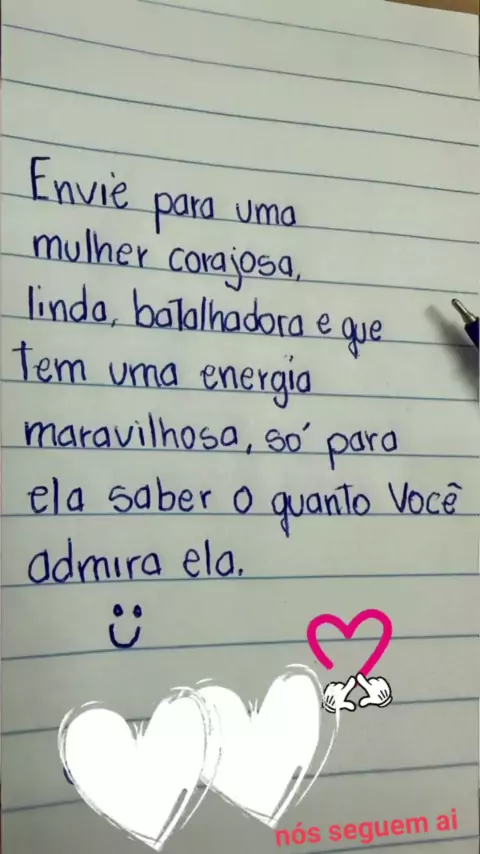 Envie para uma
mulher corajosa,
linda, batalhadora e que
tem uma energia
maravilhosa, só para
ela saber o quanto você
admira ela.
nós seguem ai